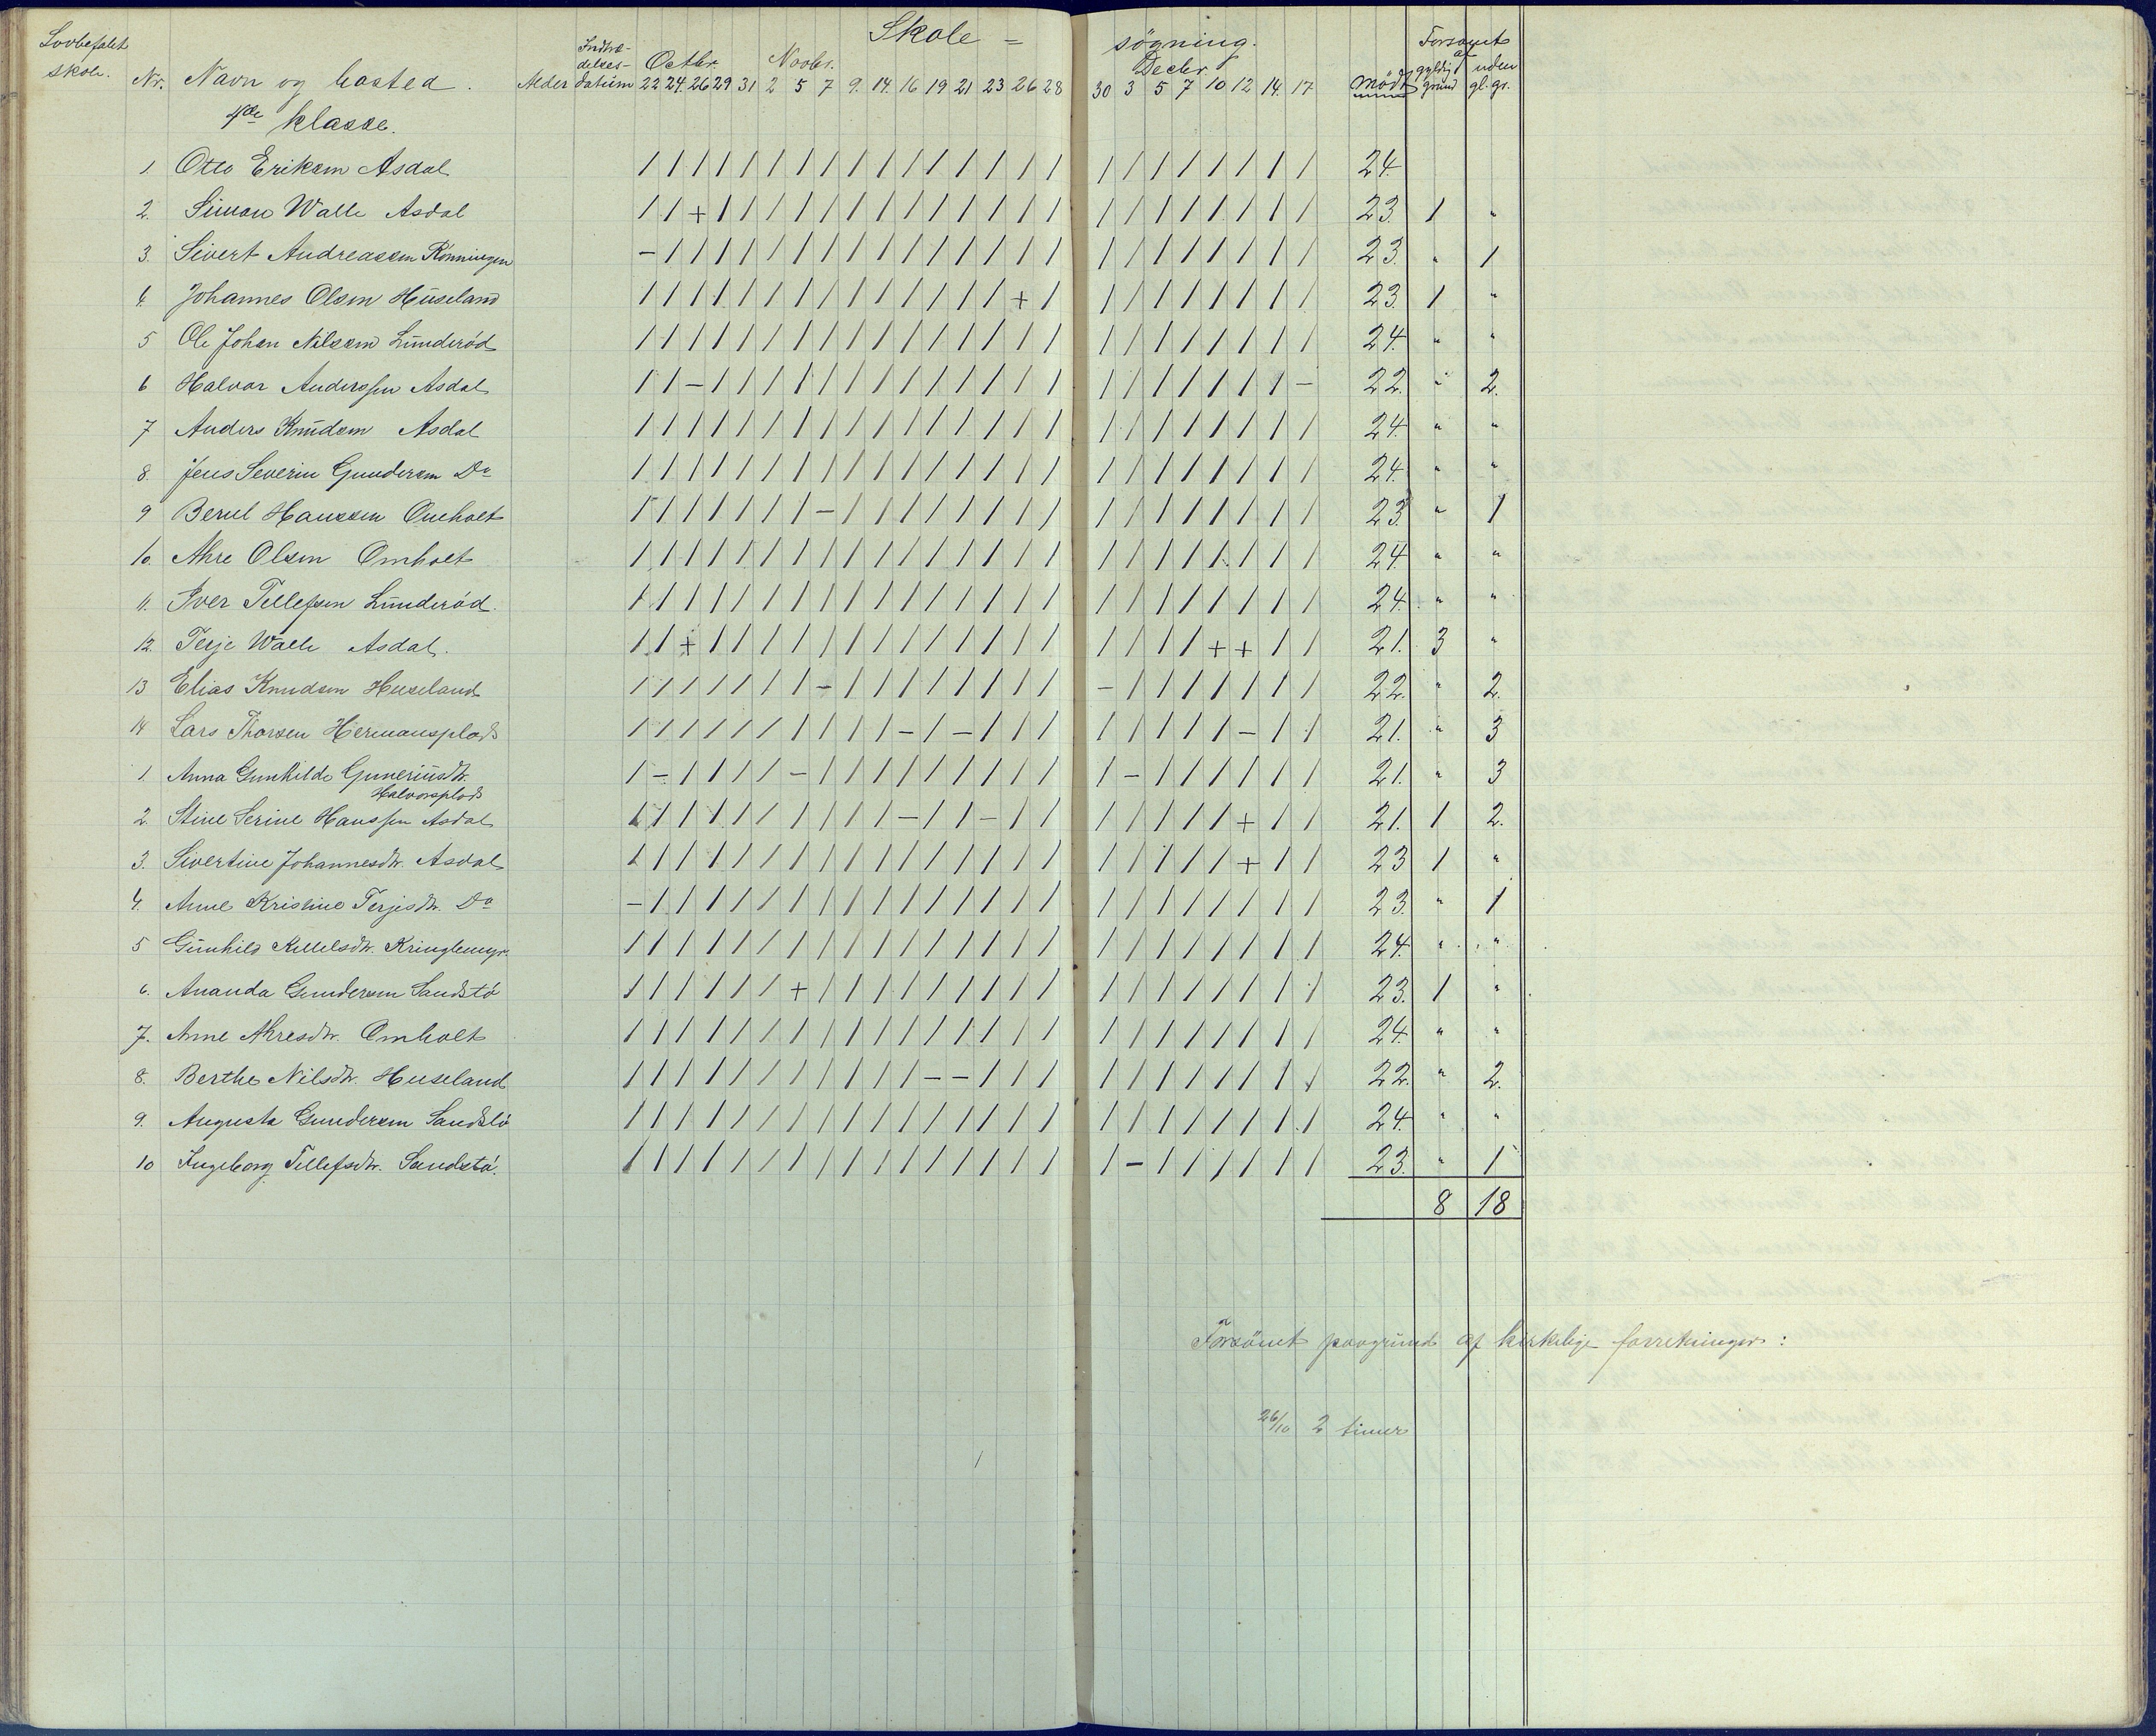 Lovbefalet
skole.
Skole = søgning.
Nr. Navn og bosted. Alder Indtræ-delses-datum Octbr. Novbr. Decbr. Mødt Forsømt af gyldig grund uden gl. gr.
22 24. 26 29 31 2 5 7 9. 14. 16 19 21 23 26 28 30 3 5 7 10 12 14. 17
4de klasse.
1 Otto Eriksen Asdal / / / / / / / / / / / / / / / / / / / / / / / / 24.
2. Simon Walle Asdal / / + / / / / / / / / / / / / / / / / / / / / / 23. 1 "
3. Sivert Andreassen Rønningen - / / / / / / / / / / / / / / / / / / / / / / / 23. " 1
4. Johannes Olsen Huseland / / / / / / / / / / / / / / + / / / / / / / / / 23. 1 "
5 Ole Johan Nilssen Lunderød / / / / / / / / / / / / / / / / / / / / / / / / 24. " "
6 Halvor Anderssen Asdal / / - / / / / / / / / / / / / / / / / / / / / - 22. " 2.
7 Anders Knudsen Asdal / / / / / / / / / / / / / / / / / / / / / / / / 24. " "
8. Jens Severin Gundersen Do / / / / / / / / / / / / / / / / / / / / / / / / 24. " "
9 Berul Hanssen Omholt / / / / / / / - / / / / / / / / / / / / / / / / 23. " 1
10. Ahre Olsen Omholt / / / / / / / / / / / / / / / / / / / / / / / / 24 " "
11. Iver Tellefsen Lunderød. / / / / / / / / / / / / / / / / / / / / / / / / 24. " "
12. Terje Walle Asdal. / / + / / / / / / / / / / / / / / / / / + + / / 21. 3 "
13 Elias Knudsen Huseland / / / / / / / - / / / / / / / / - / / / / / / / 22. " 2.
14 Lars Thorsen Hermansplads / / / / / / / / / / - / - / / / / / / / / - / / 21. " 3
1. Anna Gunhilde Guneriusdtr. / - / / / / - / / / / / / / / / / - / / / / / / 21. " 3
Halvorsplads
2. Stine Serine Hanssen Asdal / / / / / / / / / / - / / - / / / / / / / + / / 21. 1 2.
3. Sivertine Johannesdtr. Asdal / / / / / / / / / / / / / / / / / / / / / + / / 23 1 "
4. Anne Kristine Terjesdtr. Do - / / / / / / / / / / / / / / / / / / / / / / / 23. " 1
5 Gunhild Killelsdtr. Kringlemyr. / / / / / / / / / / / / / / / / / / / / / / / / 24. " "
6. Ananda Gundersen Sandstø / / / / / / + / / / / / / / / / / / / / / / / / 23. 1 "
7. Anne Ahresdtr. Omholt / / / / / / / / / / / / / / / / / / / / / / / / 24. " "
8. Berthe Nilsdtr. Huseland / / / / / / / / / / / - - / / / / / / / / / / / 22. " 2.
9. Augusta Gundersen Sandstø / / / / / / / / / / / / / / / / / / / / / / / / 24. " "
10 Ingeborg Tellefsdtr. Sandstø. / / / / / / / / / / / / / / / / / - / / / / / / 23. " 1
8 18
Forsømt paagrund af kirkelige forretninger:
26/10 2 timer